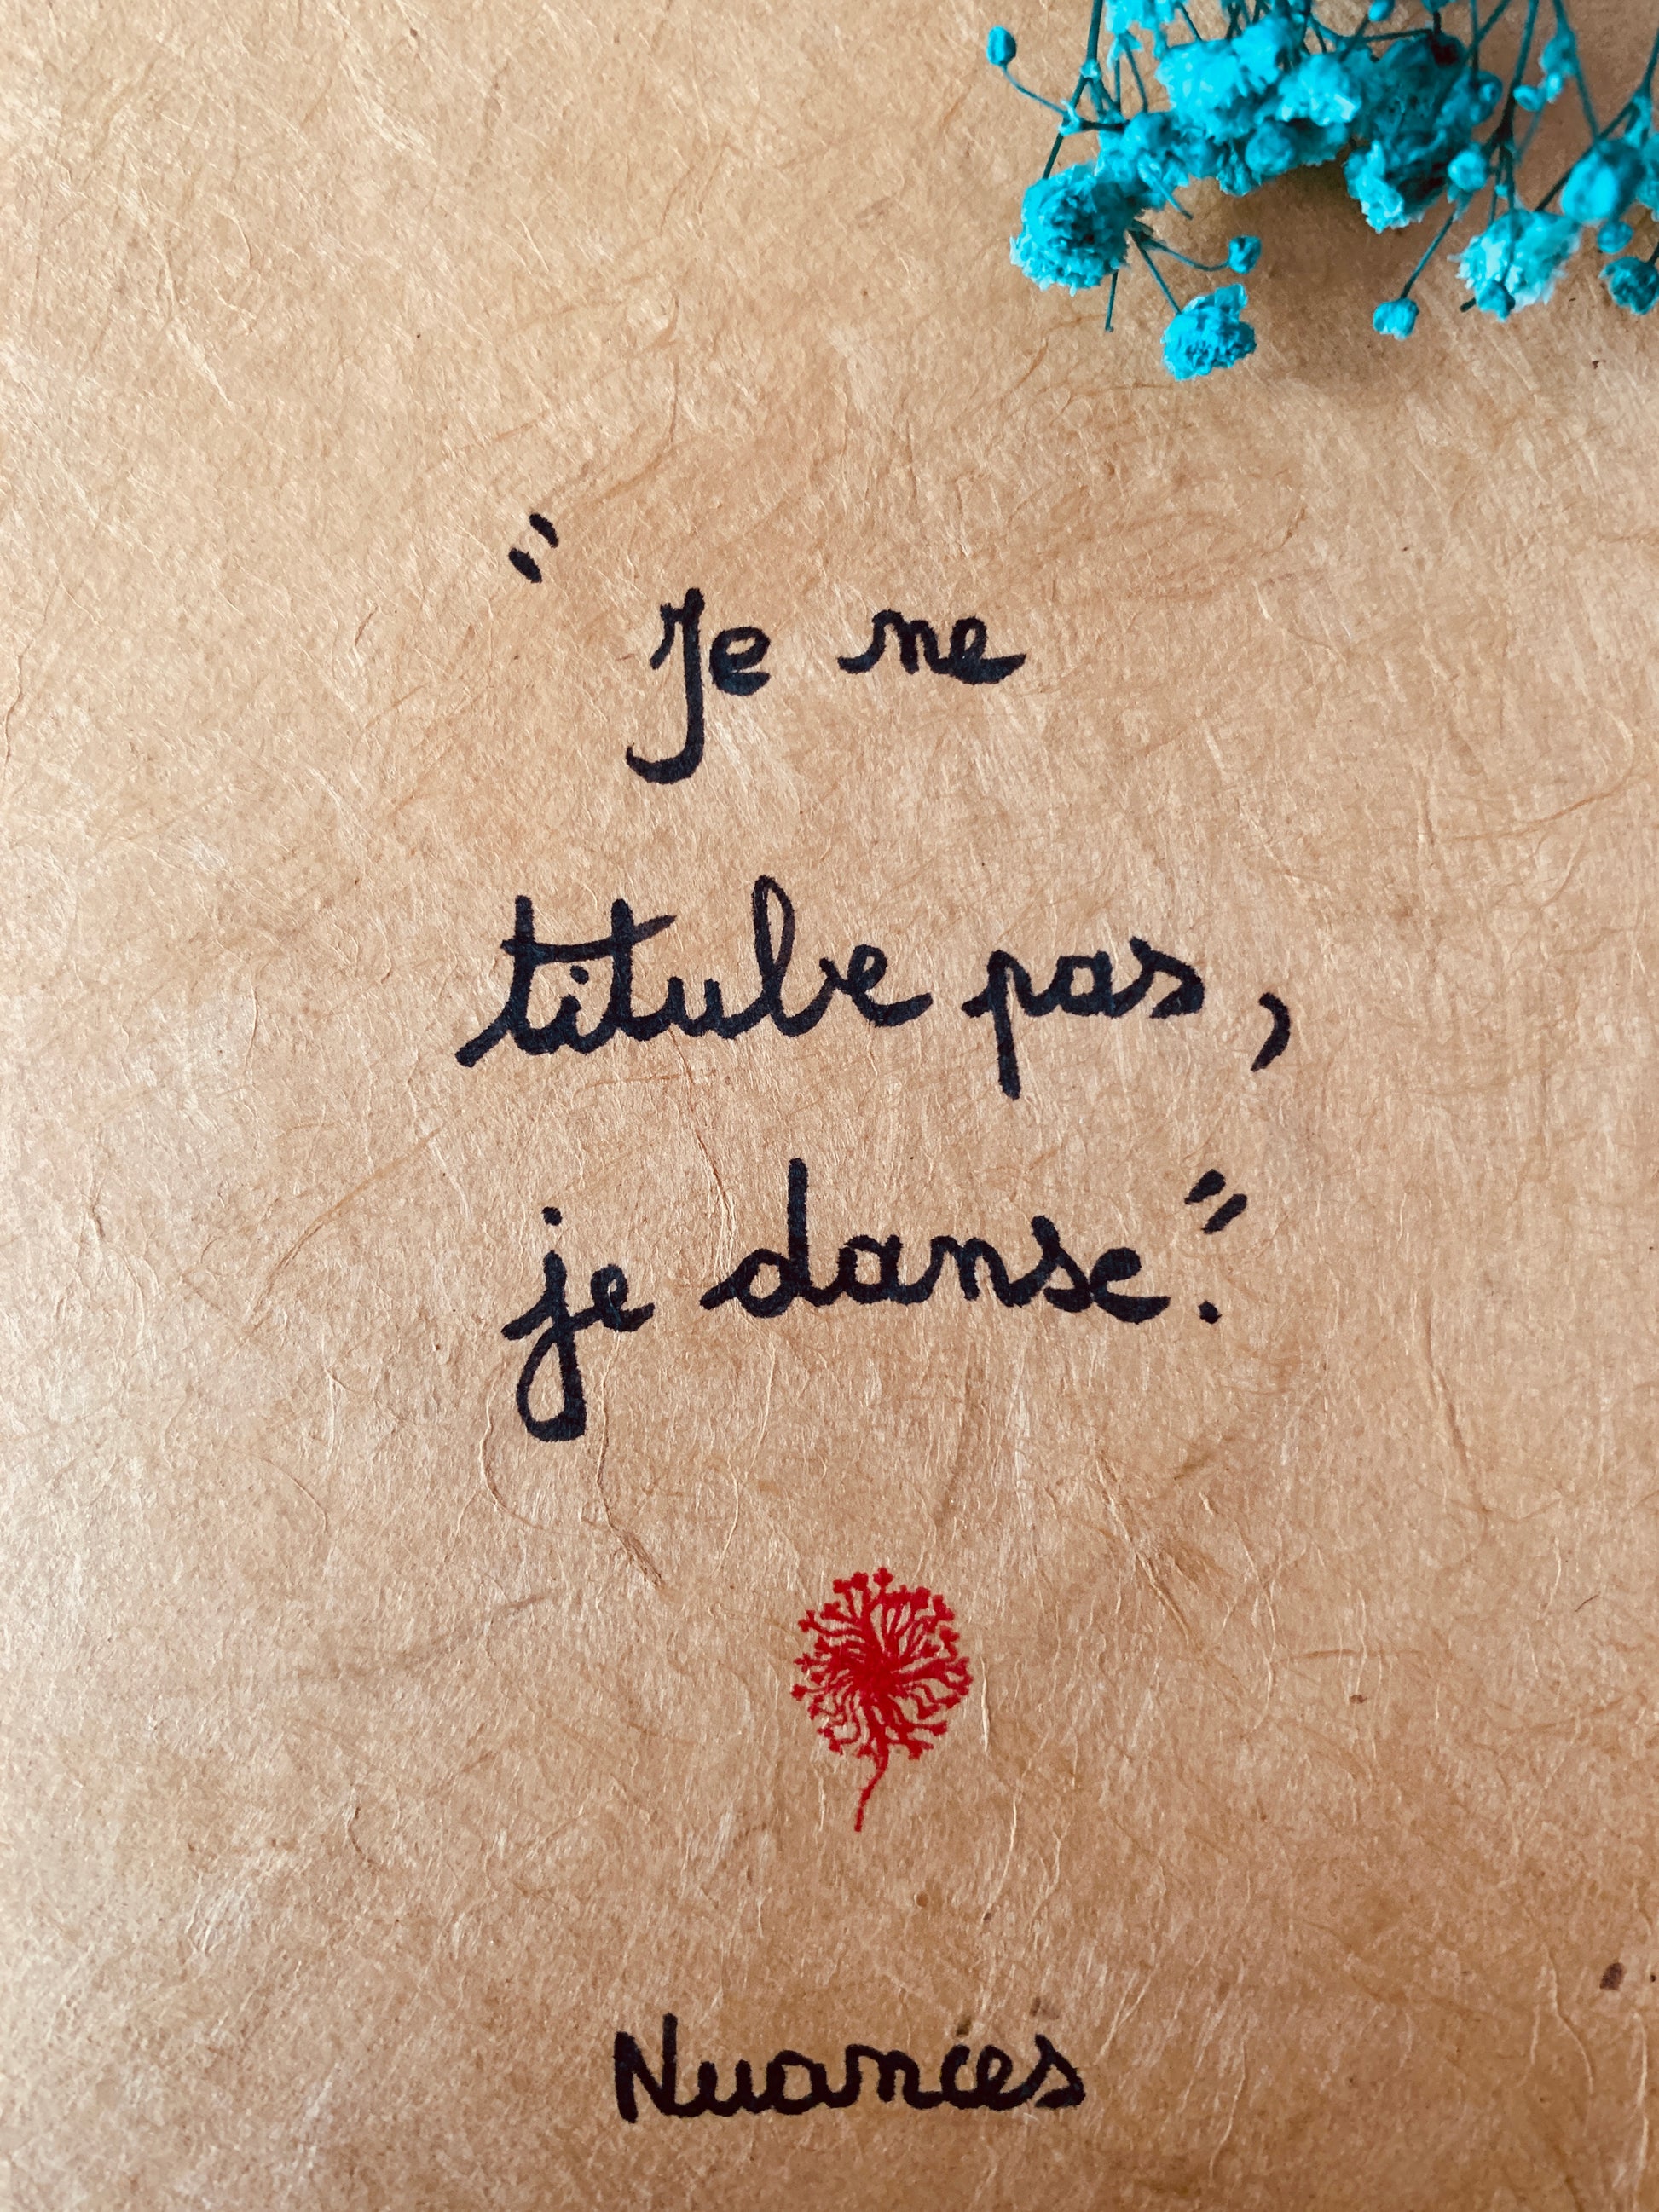 "Je ne
titube pas,
je danse."
Nuances